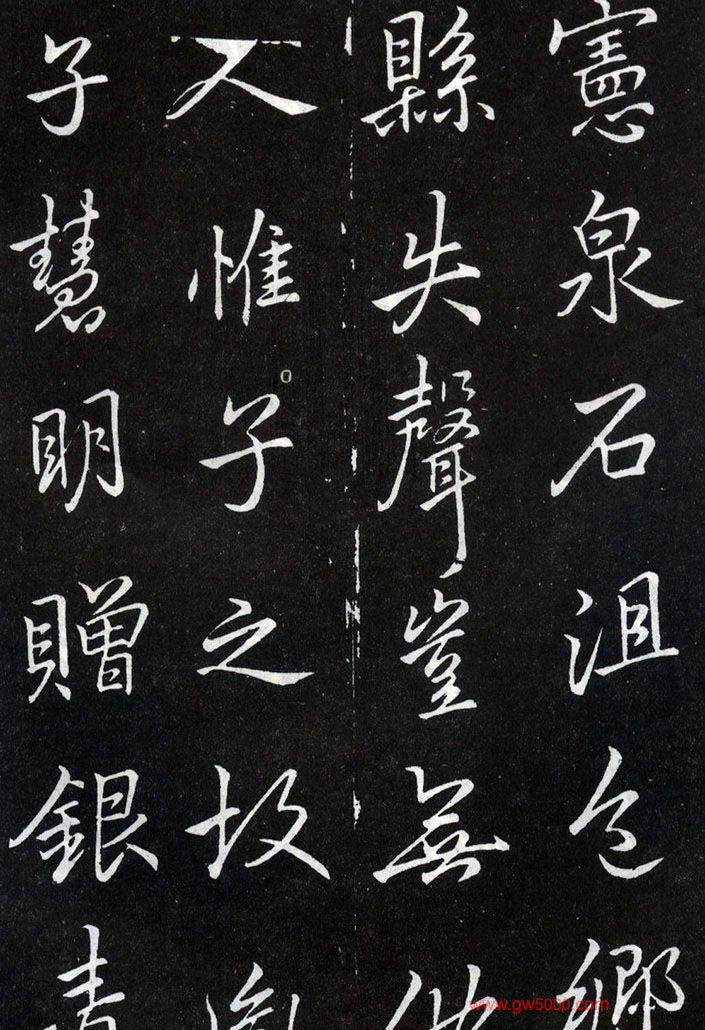 憲泉石沮色鄉
縣失聲豈無他
人惟子之故
子慧明贈銀青
www.gw5000.com